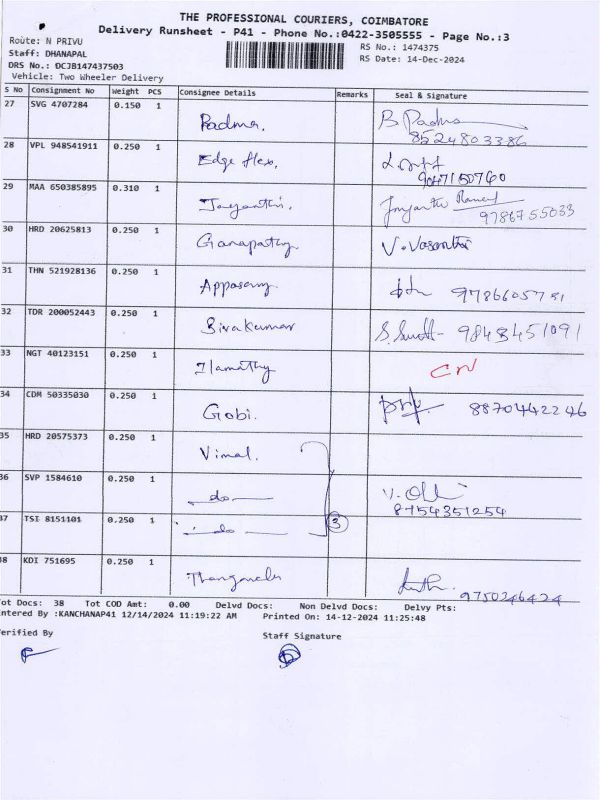 THE PROFESSIONAL COURIERS, COIMBATORE
Delivery Runsheet - P41 - Phone No.:0422-3505555 - Page No.:3
Route: N PRIVU
RS No.: 1474375
Staff: DHANAPAL
RS Date: 14-Dec-2024
DRS No.: DCJB147437503
Vehicle: Two Wheeler Delivery
S No Consignment No Weight PCS Consignee Details Remarks Seal & Signature
27 SVG 4707284 0.150 1 Padma. B Padma
8524803386
28 VPL 948541911 0.250 1 Edge flex.
9047150760
29 MAA 650385895 0.310 1 Jayanthi. Jayanthi
9786755033
30 HRD 20625813 0.250 1 Ganapathy V. Vasantha
31 THN 521928136 0.250 1 Appasamy 9786605781
32 TDR 200052443 0.250 1 Sivakumar 9843451091
33 NGT 40123151 0.250 1 Ilamathy CN
34 CDM 50335030 0.250 1 Gobi. 8870442246
35 HRD 20575373 0.250 1 Vimal.
36 SVP 1584610 0.250 1 do
8754351254
37 TSI 8151101 0.250 1 do 3
38 KDI 751695 0.250 1
9750246424
Tot Docs: 38 Tot COD Amt: 0.00 Delvd Docs: Non Delvd Docs: Delvy Pts:
Entered By :KANCHANAP41 12/14/2024 11:19:22 AM Printed On: 14-12-2024 11:25:48
Verified By Staff Signature